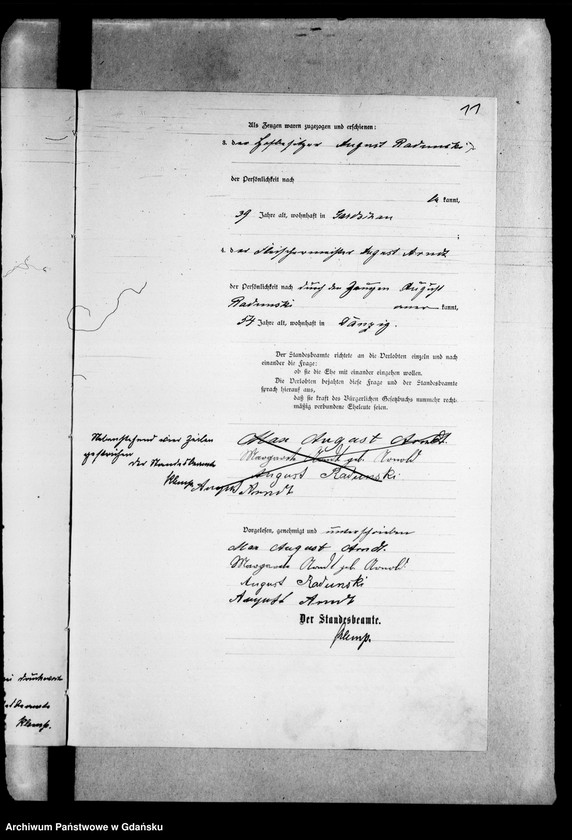 11
Als Zeugen waren zugezogen und erschienen:
3. der Hofbesitzer August Radunski
der Persönlichkeit nach
kannt,
39 Jahre alt, wohnhaft in
;
4. der Fleischermeister August Arndt
der Persönlichkeit nach durch den Zeugen August
Radunski anerkannt,
54 Jahre alt, wohnhaft in Danzig.
Der Standesbeamte richtete an die Verlobten einzeln und nach
einander die Frage:
ob sie die Ehe mit einander eingehen wollen.
Die Verlobten bejahten diese Frage und der Standesbeamte
sprach hierauf aus,
daß sie kraft des Bürgerlichen Gesetzbuchs nunmehr recht-
mäßig verbundene Eheleute seien.
Nebenstehend vier Zeilen
gestrichen
der Standesbeamte
Klemp.
Max August Arndt.
Margarete Arndt geb. Arnold
August Radunski
August Arndt
Vorgelesen, genehmigt und unterschrieben
Max August Arndt.
Margarete Arndt geb. Arnold
August Radunski
August Arndt
Der Standesbeamte.
Klemp.
Klemp.
Archiwum Państwowe w Gdańsku